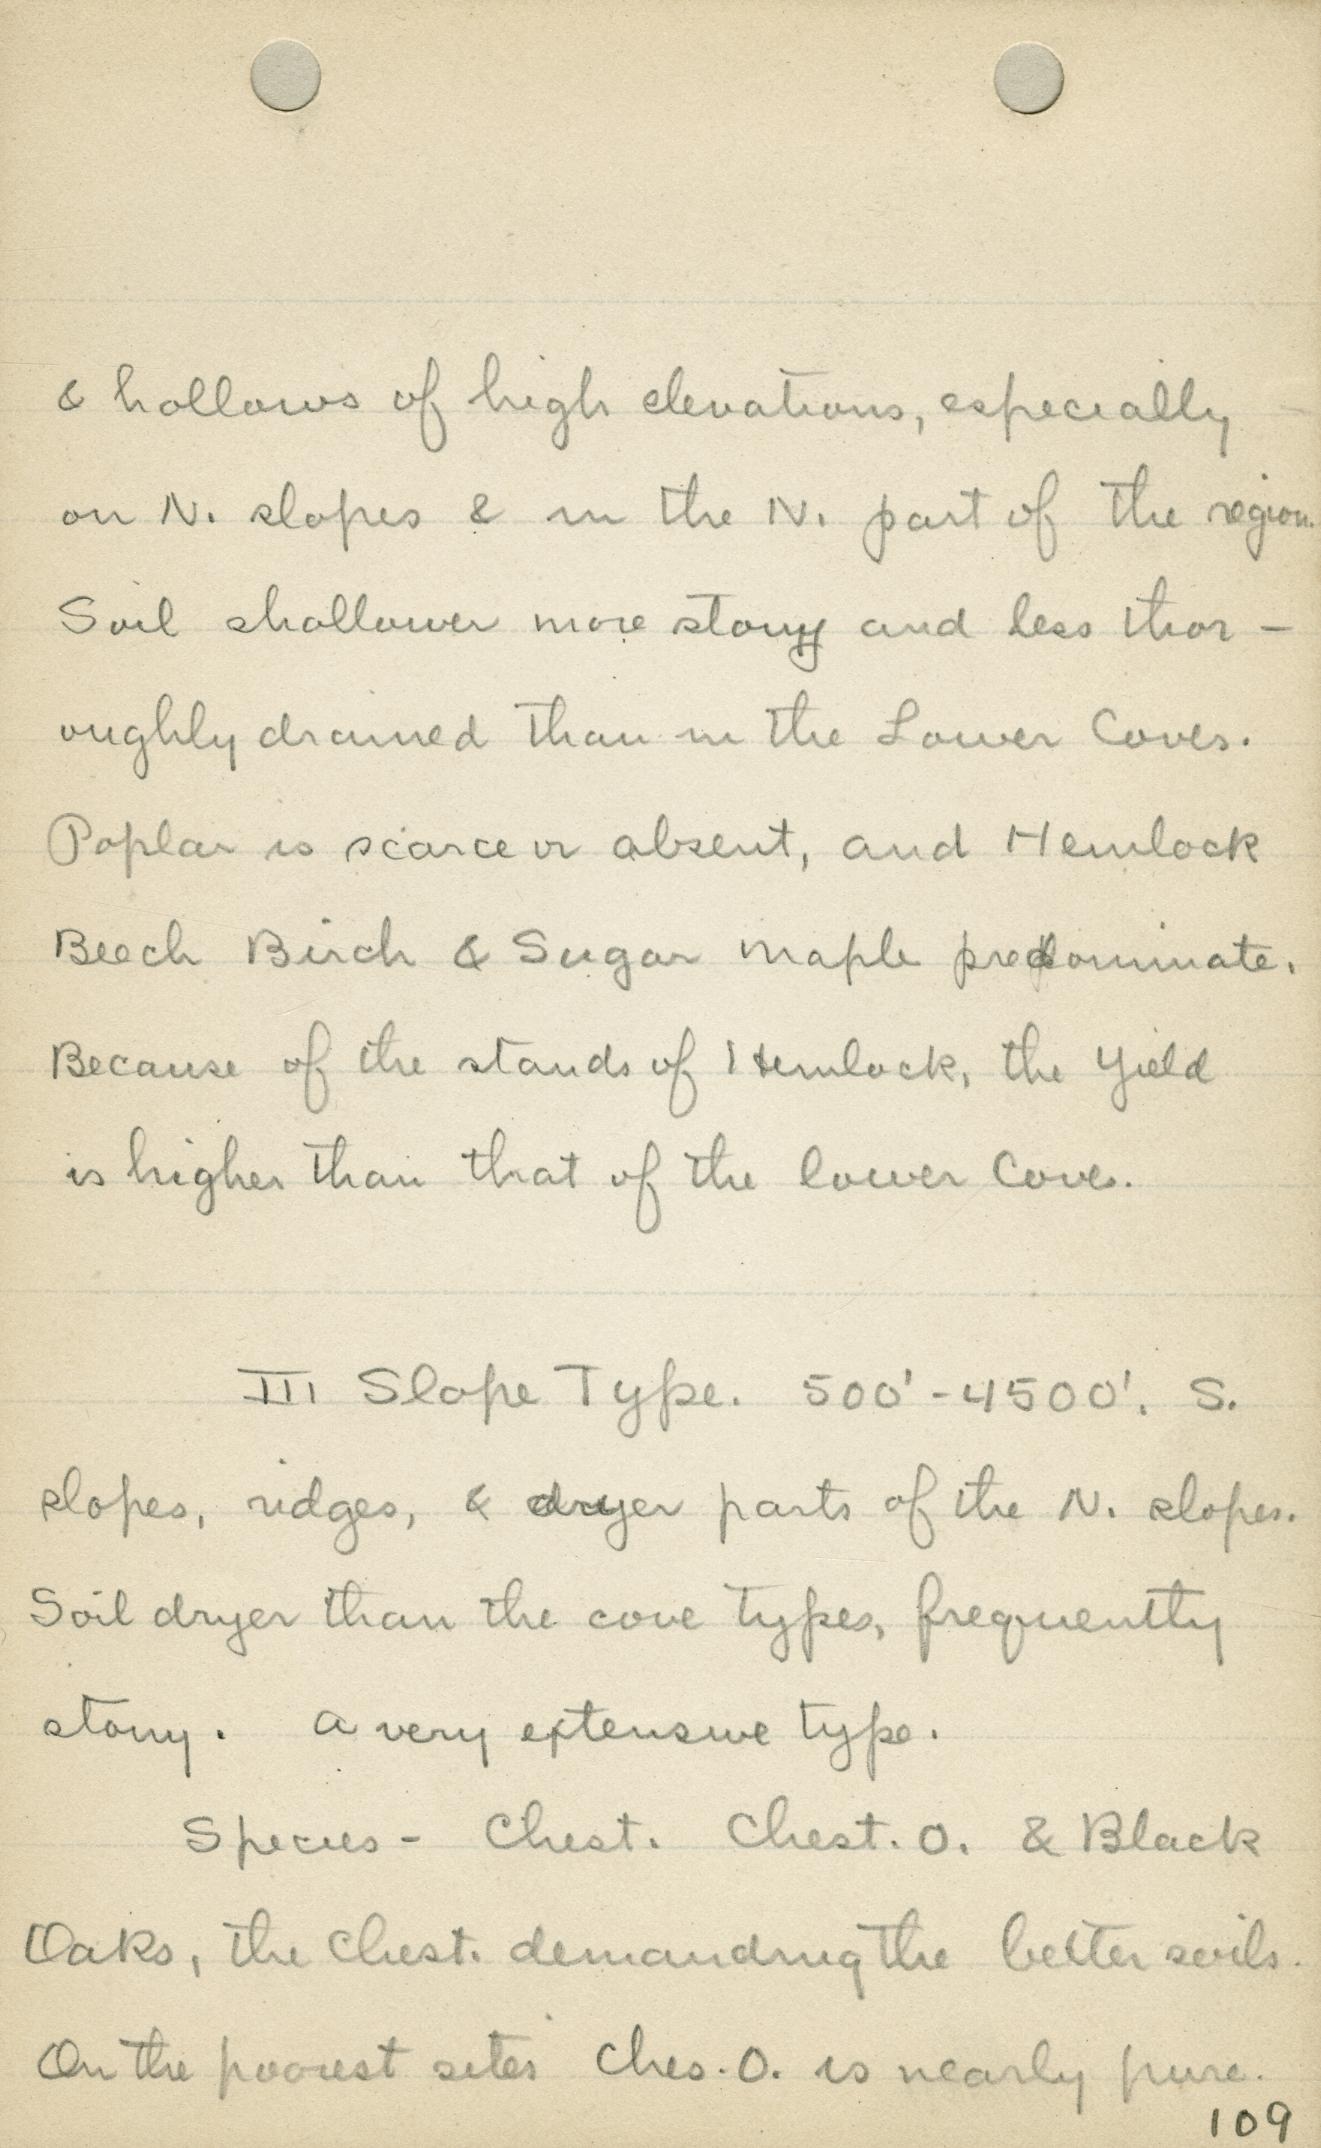 & hollows of high elevations, especially
on N. slopes & in the N. part of the region.
Soil shallower more stony and less thor-
oughly drained than in the Lower Coves.
Poplar is scarce or absent, and Hemlock
Beech Birch & Sugar Maple predominate.
Because of the stands of Hemlock, the yield
is higher than that of the lower Cove.
III Slope Type. 500'-4500'. S.
slopes, ridges, & dryer parts of the N. slopes.
Soil dryer than the cove types, frequently
stony. A very extensive type.
Species - Chest. Chest. O. & Black
Oaks, the Chest. demanding the better soils.
On the poorest sites Ches. O. is nearly pure.
109